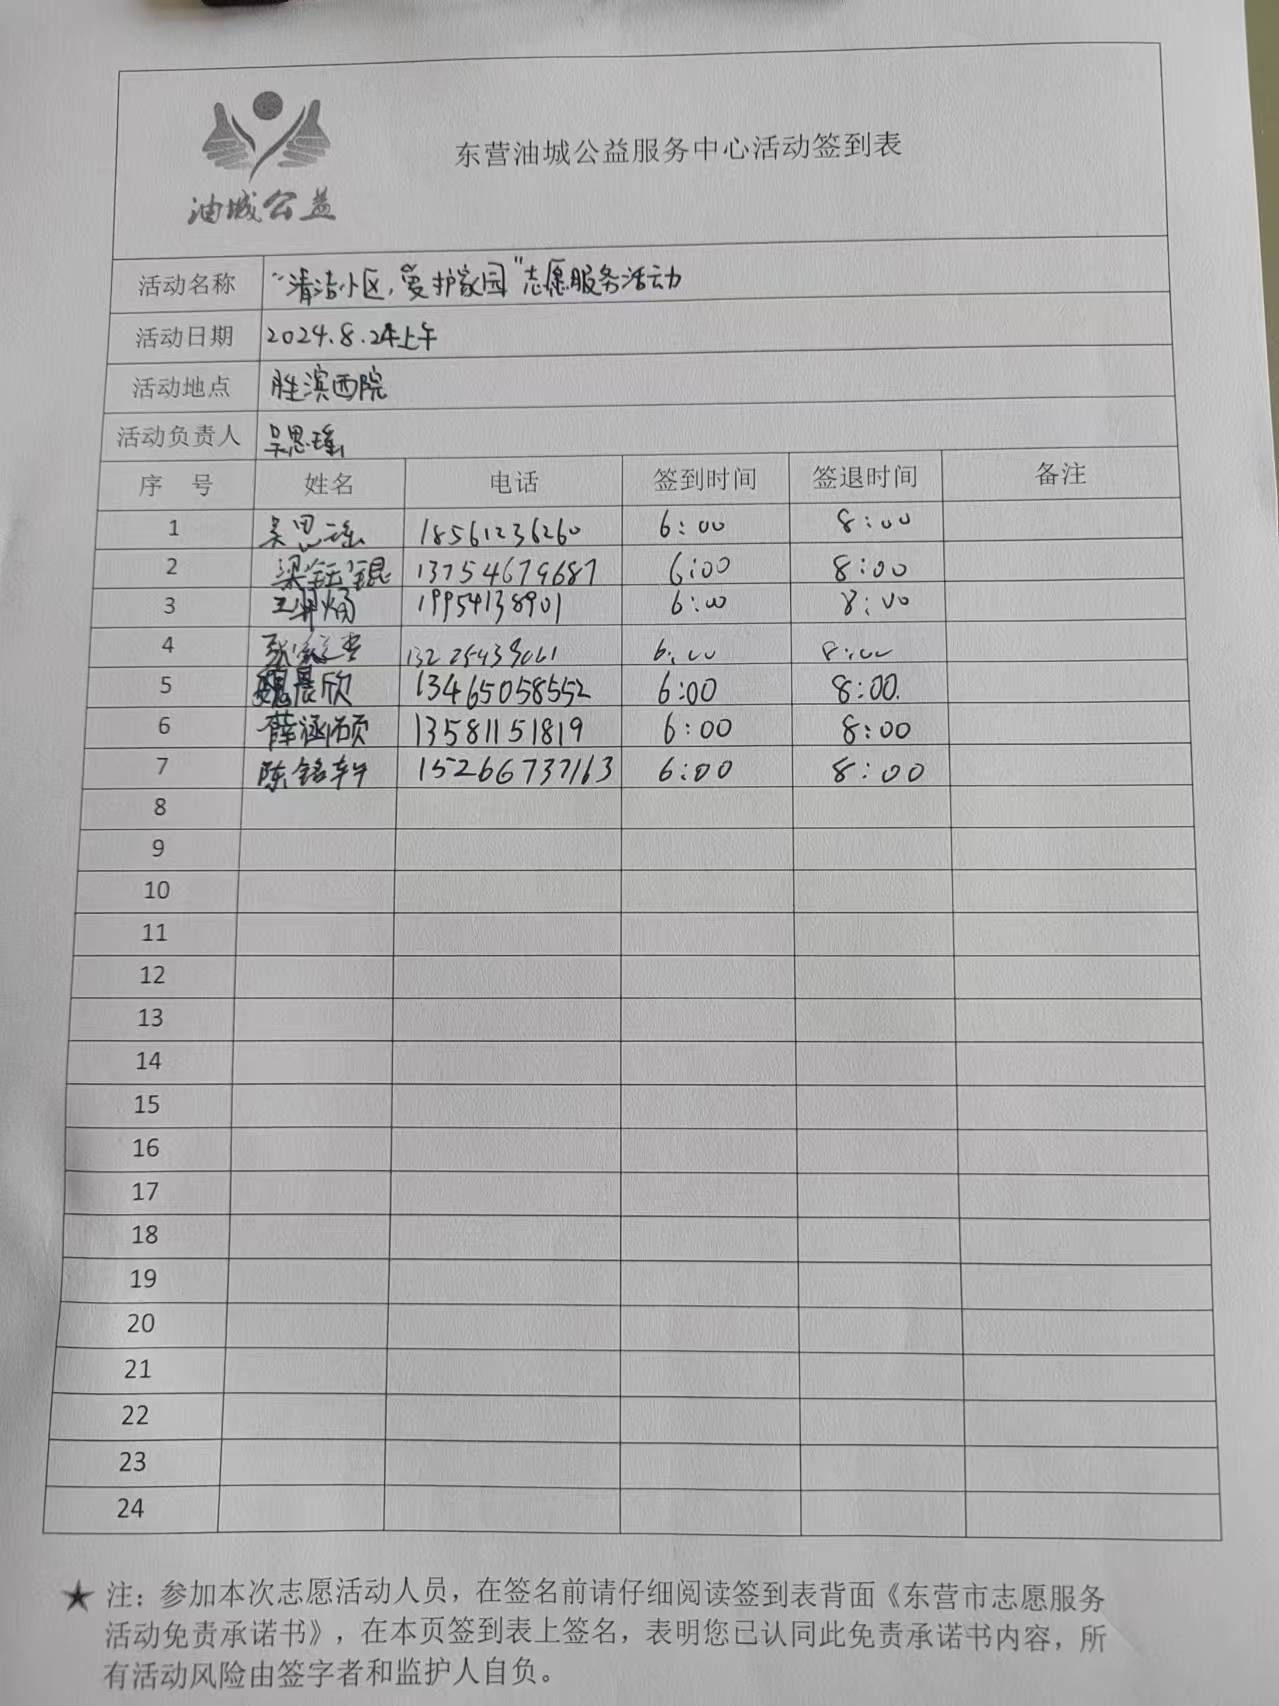 油城公益
东营油城公益服务中心活动签到表
活动名称 "清洁小区,爱护家园"志愿服务活动
活动日期 2024.8.24上午
活动地点 胜滨西院
活动负责人 吴思瑶
序 号 姓名 电话 签到时间 签退时间 备注
1 吴思瑶 18561236260 6:00 8:00
2 梁钰锟 13754679687 6:00 8:00
3 19954138901 6:00 8:00
4 6:00 8:00
5 魏晨欣 13465058552 6:00 8:00
6 薛涵硕 13581151819 6:00 8:00
7 陈铭轩 15266737163 6:00 8:00
8
9
10
11
12
13
14
15
16
17
18
19
20
21
22
23
24
★ 注：参加本次志愿活动人员，在签名前请仔细阅读签到表背面《东营市志愿服务
活动免责承诺书》，在本页签到表上签名，表明您已认同此免责承诺书内容，所
有活动风险由签字者和监护人自负。